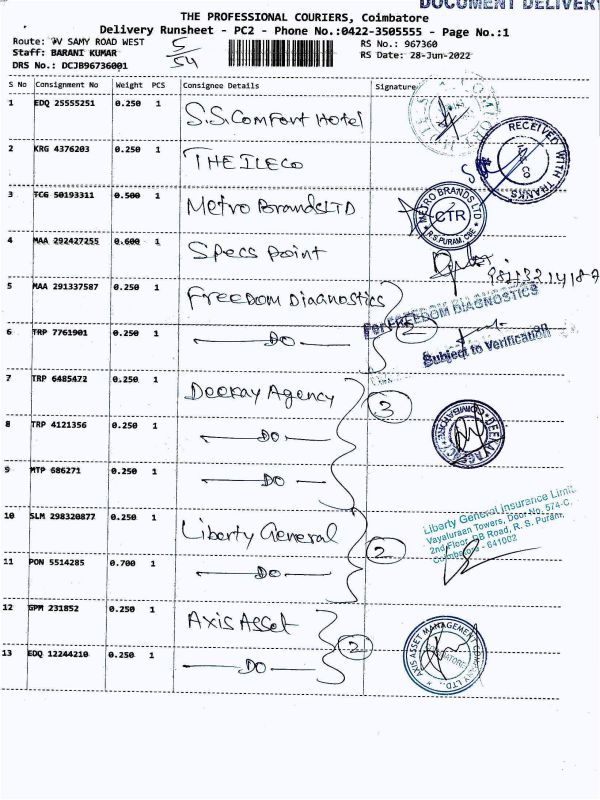 DOCUMENT DELIVERY
THE PROFESSIONAL COURIERS, Coimbatore
Delivery Runsheet - PC2 - Phone No.:0422-3505555 - Page No.:1
Route: PV SAMY ROAD WEST 5/54 RS No.: 967360
Staff: BARANI KUMAR RS Date: 28-Jun-2022
DRS No.: DCJB96736001
S No Consignment No Weight PCS Consignee Details Signature
1 EDQ 25555251 0.250 1 S.S.Comfort Hotel
2 KRG 4376203 0.250 1
RECEIVED WITH THANKS
3 TCG 50193311 0.500 1 Metro Brands LTD
METRO BRANDS LTD
CTR
R S PURAM, CBE
4 MAA 292427255 0.600 1 Specs point
5 MAA 291337587 0.250 1 Freedom Diagnostics
For FREEDOM DIAGNOSTICS
6 TRP 7761901 0.250 1 DO 2
Subject to Verification
7 TRP 6485472 0.250 1 Deekay Agency 3
8 TRP 4121356 0.250 1 DO
9 MTP 686271 0.250 1 DO
10 SLM 298320877 0.250 1 Liberty General
Liberty General Insurance Limit
Towers, Door No. 574-C,
2nd Floor, DB Road, R. S. Puram,
Coimbatore - 641002
11 PON 5514285 0.700 1 DO 2
12 GPM 231852 0.250 1 Axis Asset
AXIS ASSET MANAGEMENT COMPANY LTD.
13 EDQ 12244210 0.250 1 DO 2